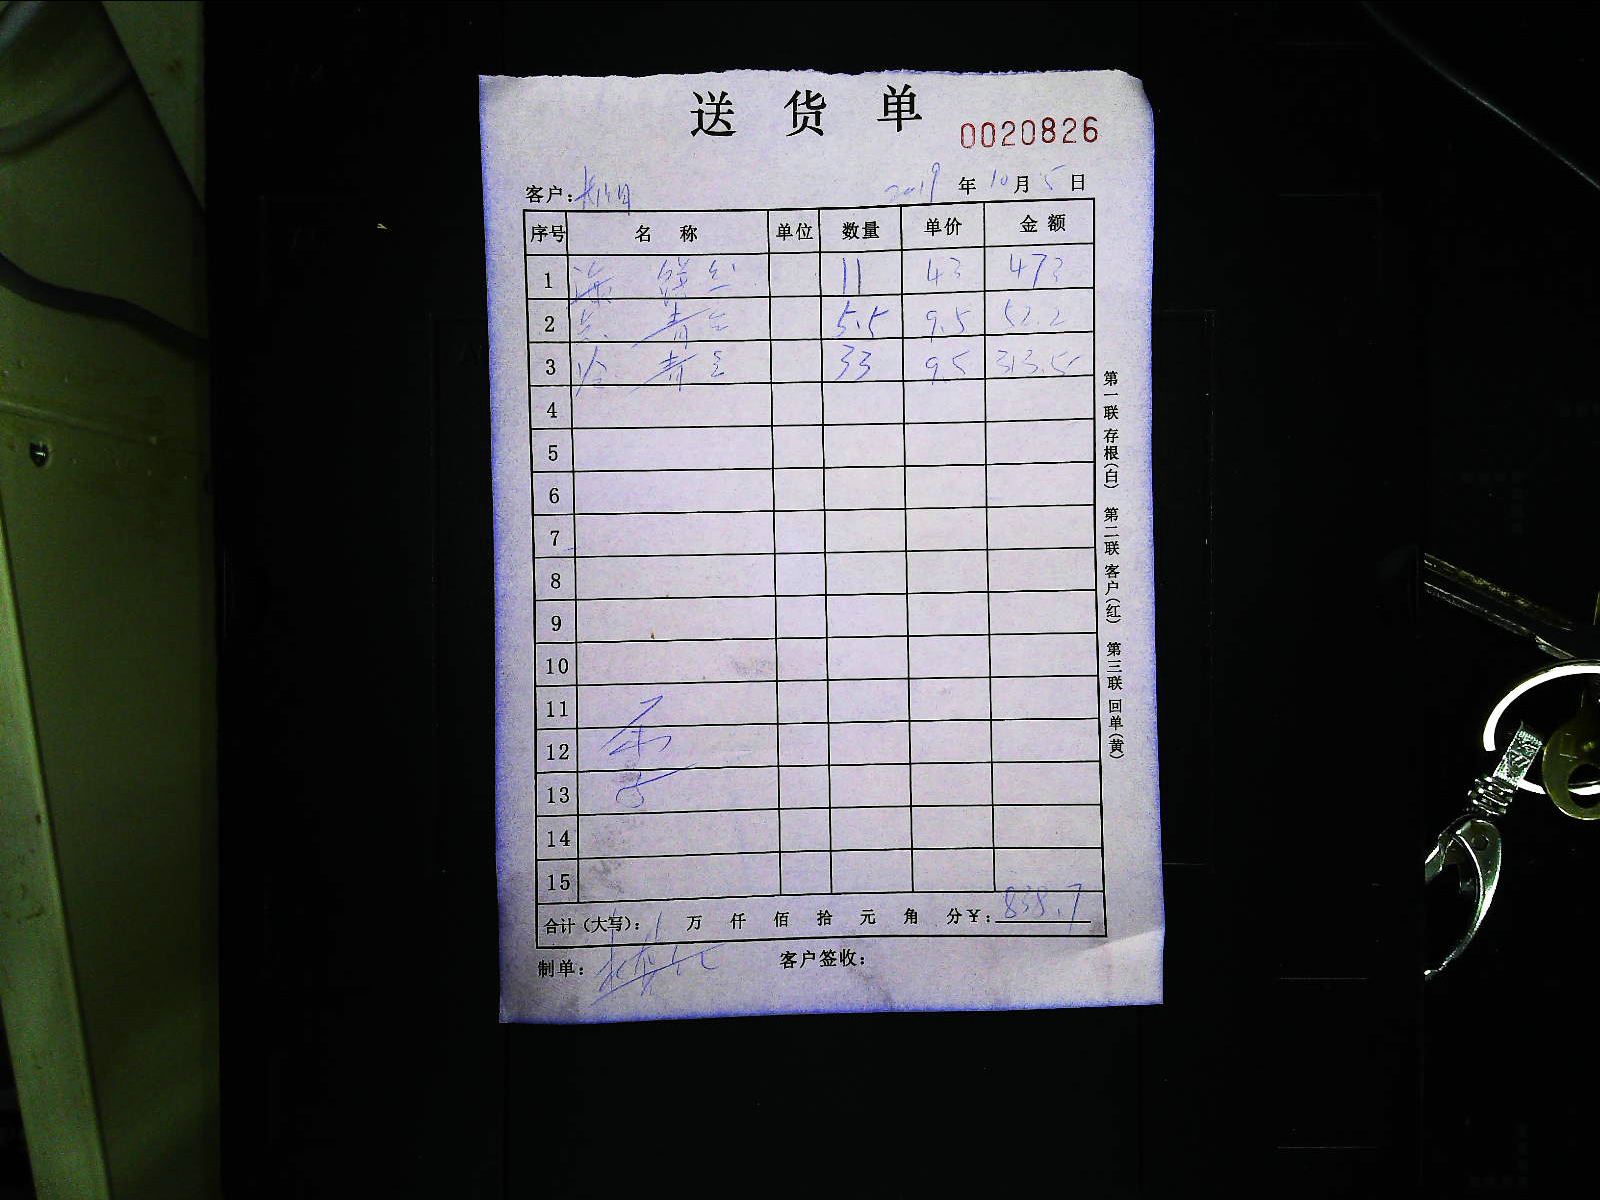 送 货 单
0020826
客户： 2019 年 10 月 5 日
序号 名 称 单位 数量 单价 金 额
1 海 鲜 11 43 473
2 青 5.5 9.5 52.2
3 冷 青 33 9.5 313.5
4
5
6
7
8
9
10
11
12
13
14
15
合计（大写）： 万 仟 佰 拾 元 角 分￥：838.7
制单： 客户签收：
第一联 存根（白） 第二联 客户（红） 第三联 回单（黄）